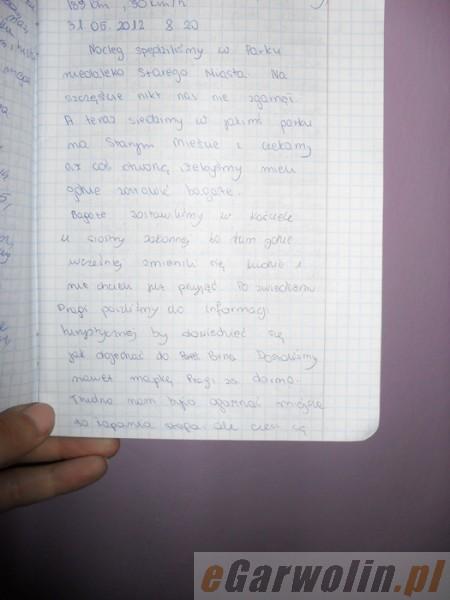 189 km, 30 km/h
31.05.2012 8.20
Nocleg spędziliśmy w Parku
niedaleko Starego Miasta. Na
szczęście nikt nas nie zgarnął.
A teraz siedzimy w jakimś parku
na Starym Mieście i czekamy
aż coś otworzą, żebyśmy mieli
gdzie zostawić bagaże.
Bagaże zostawiliśmy w kościele
u siostry zakonnej bo tam gdzie
wcześniej zmienili się ludzie i
nie chcieli już przyjąć. Po zwiedzaniu
Pragi poszliśmy do informacji
turystycznej by dowiedzieć się
jak dojechać do Brna. Dostaliśmy
nawet mapkę Pragi za darmo.
Trudno nam było ogarnąć miejsce
do łapania stopa ale czesi są
eGarwolin.pl